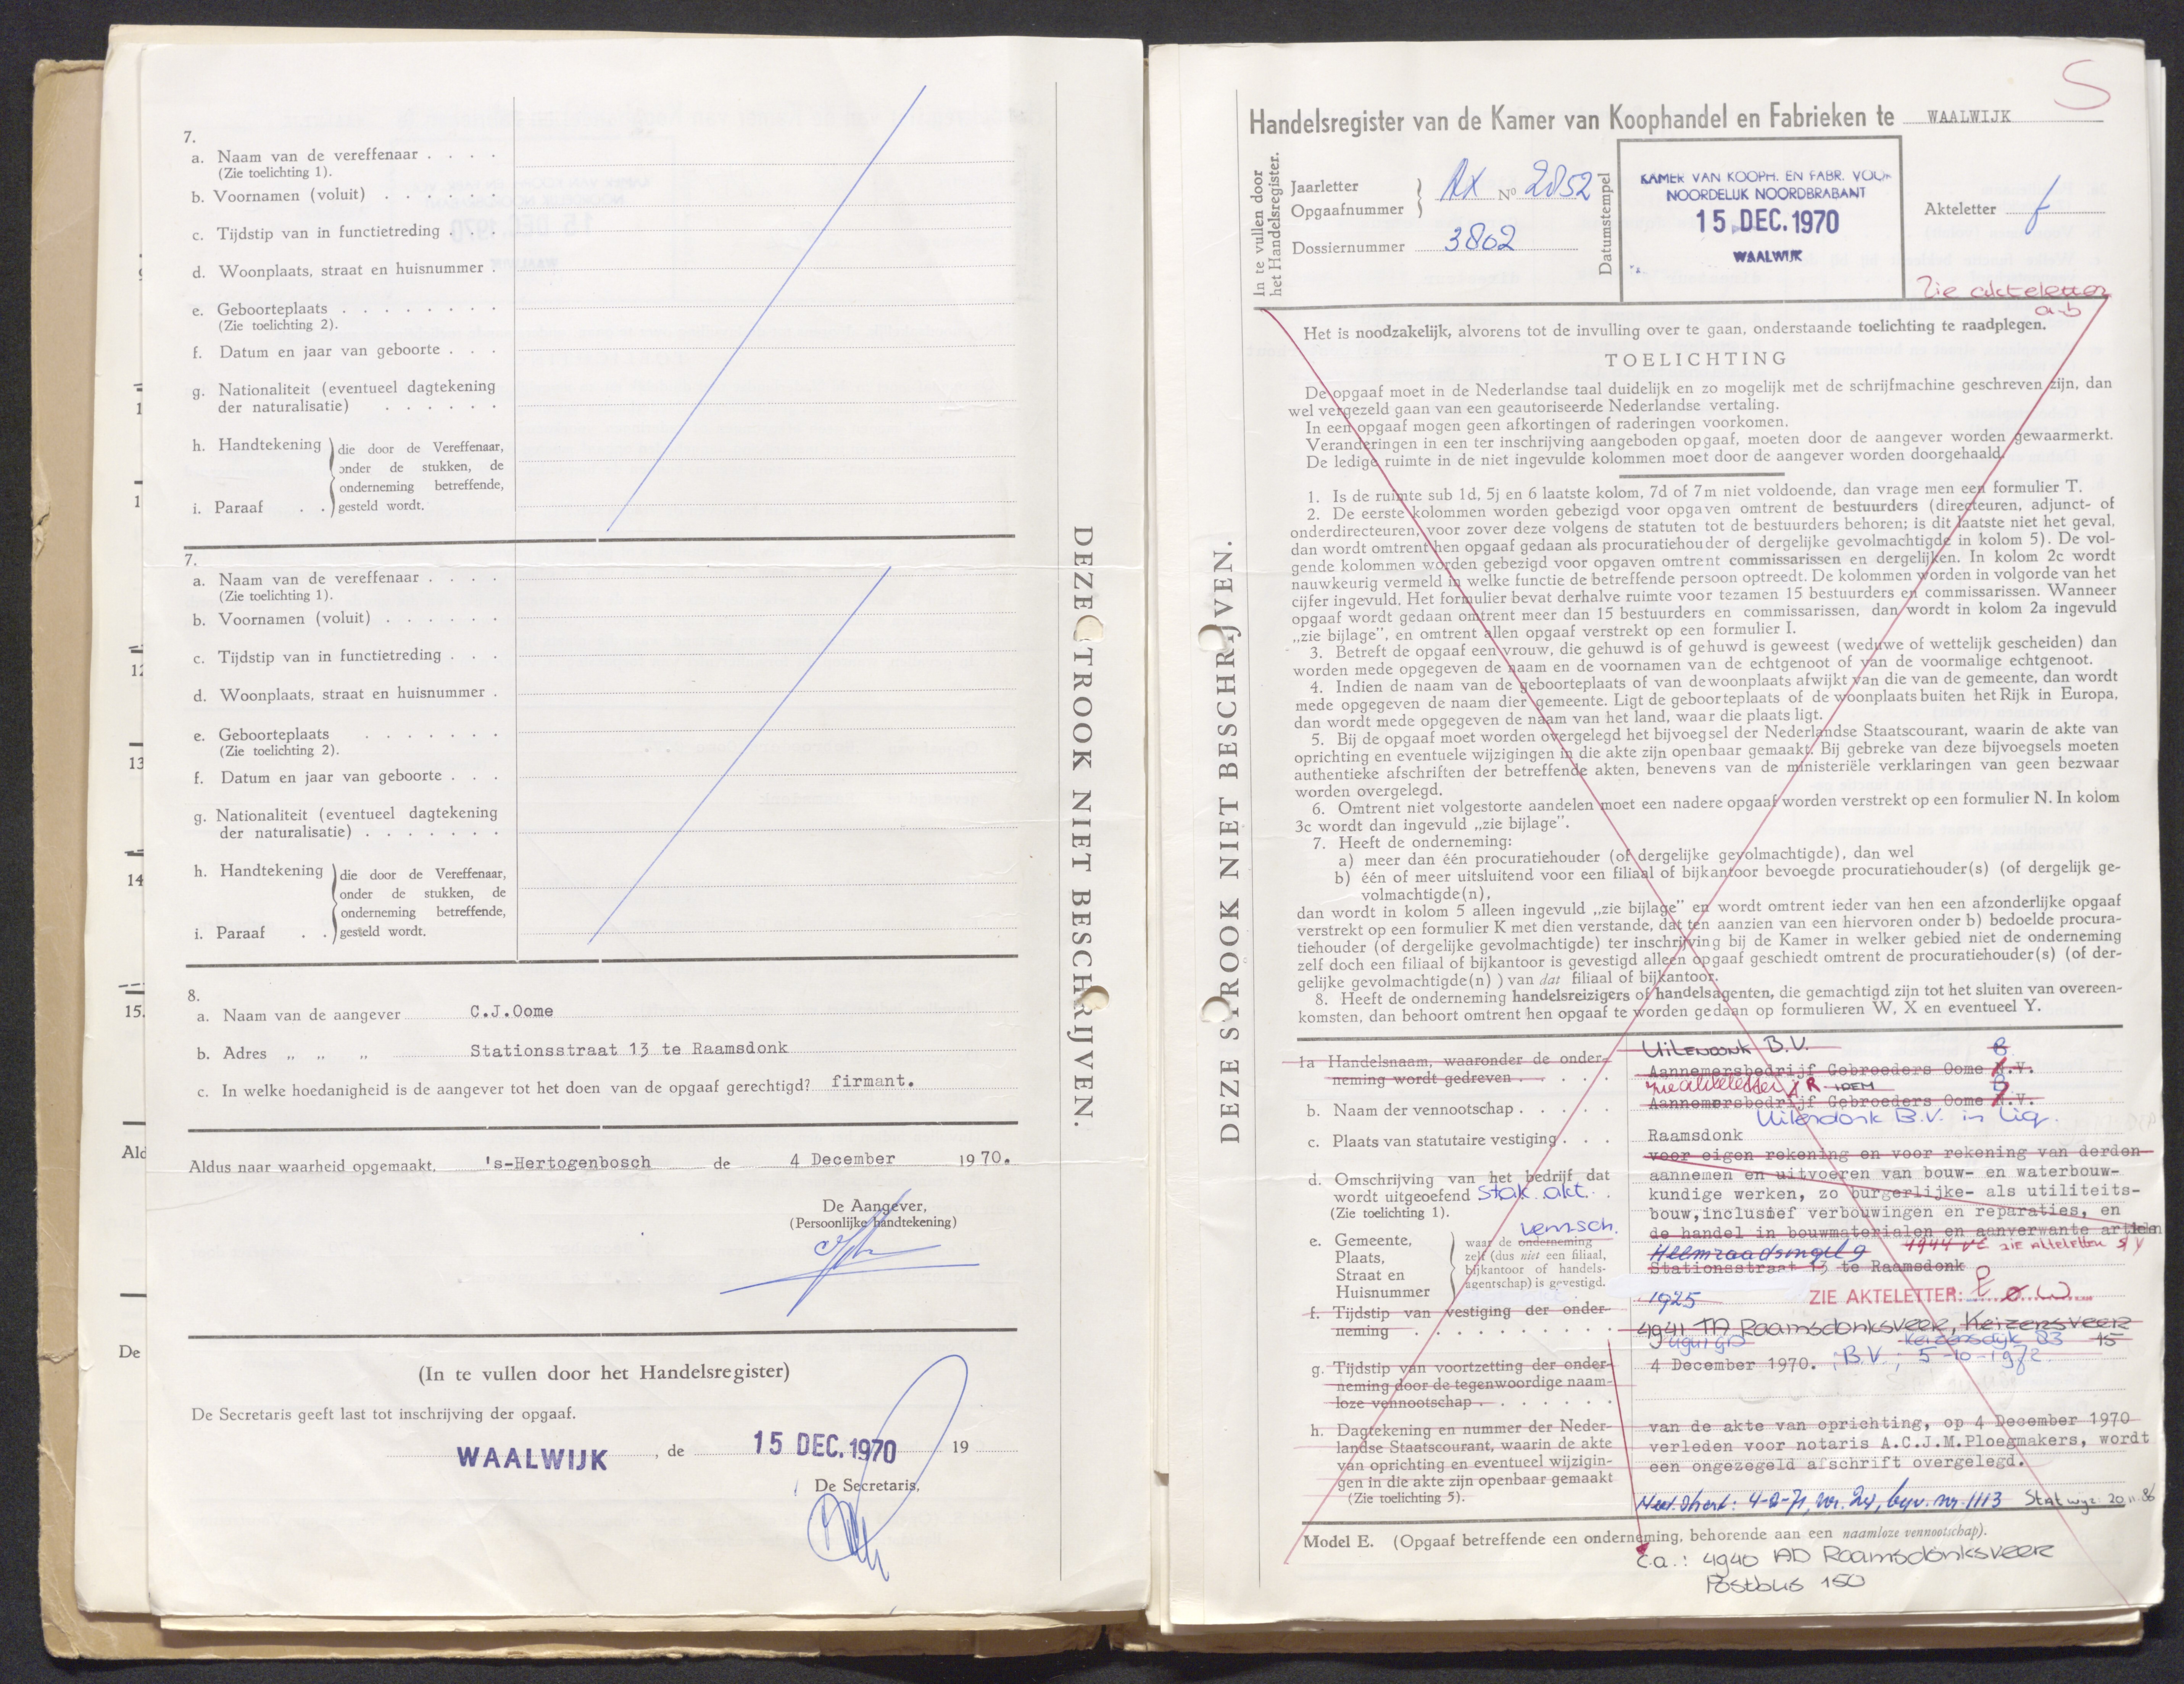 7.
a. Naam van de vereffenaar . . . .
(Zie toelichting 1).
b. Voornamen (voluit) . . . . . .
c. Tijdstip van in functietreding . . .
d. Woonplaats, straat en huisnummer .
e. Geboorteplaats . . . . . . . .
(Zie toelichting 2).
f. Datum en jaar van geboorte . . .
g. Nationaliteit (eventueel dagtekening
der naturalisatie) . . . . . .
h. Handtekening
die door de Vereffenaar,
onder de stukken, de
onderneming betreffende,
i. Paraaf . . gesteld wordt.
7.
a. Naam van de vereffenaar . . . .
(Zie toelichting 1).
b. Voornamen (voluit) . . . . . .
c. Tijdstip van in functietreding . . .
d. Woonplaats, straat en huisnummer .
e. Geboorteplaats . . . . . . .
(Zie toelichting 2).
f. Datum en jaar van geboorte . . .
g. Nationaliteit (eventueel dagtekening
der naturalisatie) . . . . . . .
h. Handtekening
die door de Vereffenaar,
onder de stukken, de
onderneming betreffende,
i. Paraaf . . gesteld wordt.
8.
a. Naam van de aangever C.J.Oome
b. Adres „ „ „ Stationsstraat 13 te Raamsdonk
c. In welke hoedanigheid is de aangever tot het doen van de opgaaf gerechtigd? firmant.
Aldus naar waarheid opgemaakt, 's-Hertogenbosch de 4 December 1970.
De Aangever,
(Persoonlijke handtekening)
(In te vullen door het Handelsregister)
De Secretaris geeft last tot inschrijving der opgaaf.
WAALWIJK , de 15 DEC. 1970 19
De Secretaris,
DEZE STROOK NIET BESCHRIJVEN.
1
1
12
13
14
15.
Ald
De
DEZE STROOK NIET BESCHRIJVEN.
S
Handelsregister van de Kamer van Koophandel en Fabrieken te WAALWIJK
In te vullen door
het Handelsregister.
Jaarletter
Opgaafnummer
AX No 2052
Dossiernummer 3802
Datumstempel
KAMER VAN KOOPH. EN FABR. VOOR
NOORDELIJK NOORDBRABANT
15 DEC. 1970
WAALWIJK
Akteletter f
Zie akteletter
a-b
Het is noodzakelijk, alvorens tot de invulling over te gaan, onderstaande toelichting te raadplegen.
TOELICHTING
De opgaaf moet in de Nederlandse taal duidelijk en zo mogelijk met de schrijfmachine geschreven zijn, dan
wel vergezeld gaan van een geautoriseerde Nederlandse vertaling.
In een opgaaf mogen geen afkortingen of raderingen voorkomen.
Veranderingen in een ter inschrijving aangeboden opgaaf, moeten door de aangever worden gewaarmerkt.
De ledige ruimte in de niet ingevulde kolommen moet door de aangever worden doorgehaald.
1. Is de ruimte sub 1d, 5j en 6 laatste kolom, 7d of 7m niet voldoende, dan vrage men een formulier T.
2. De eerste kolommen worden gebezigd voor opgaven omtrent de bestuurders (directeuren, adjunct- of
onderdirecteuren, voor zover deze volgens de statuten tot de bestuurders behoren; is dit laatste niet het geval,
dan wordt omtrent hen opgaaf gedaan als procuratiehouder of dergelijke gevolmachtigde in kolom 5). De vol-
gende kolommen worden gebezigd voor opgaven omtrent commissarissen en dergelijken. In kolom 2c wordt
nauwkeurig vermeld in welke functie de betreffende persoon optreedt. De kolommen worden in volgorde van het
cijfer ingevuld. Het formulier bevat derhalve ruimte voor tezamen 15 bestuurders en commissarissen. Wanneer
opgaaf wordt gedaan omtrent meer dan 15 bestuurders en commissarissen, dan wordt in kolom 2a ingevuld
„zie bijlage”, en omtrent allen opgaaf verstrekt op een formulier I.
3. Betreft de opgaaf een vrouw, die gehuwd is of gehuwd is geweest (weduwe of wettelijk gescheiden) dan
worden mede opgegeven de naam en de voornamen van de echtgenoot of van de voormalige echtgenoot.
4. Indien de naam van de geboorteplaats of van de woonplaats afwijkt van die van de gemeente, dan wordt
mede opgegeven de naam dier gemeente. Ligt de geboorteplaats of de woonplaats buiten het Rijk in Europa,
dan wordt mede opgegeven de naam van het land, waar die plaats ligt.
5. Bij de opgaaf moet worden overgelegd het bijvoegsel der Nederlandse Staatscourant, waarin de akte van
oprichting en eventuele wijzigingen in die akte zijn openbaar gemaakt. Bij gebreke van deze bijvoegsels moeten
authentieke afschriften der betreffende akten, benevens van de ministeriële verklaringen van geen bezwaar
worden overgelegd.
6. Omtrent niet volgestorte aandelen moet een nadere opgaaf worden verstrekt op een formulier N. In kolom
3c wordt dan ingevuld „zie bijlage”.
7. Heeft de onderneming:
a) meer dan één procuratiehouder (of dergelijke gevolmachtigde), dan wel
b) één of meer uitsluitend voor een filiaal of bijkantoor bevoegde procuratiehouder(s) (of dergelijk ge-
volmachtigde(n),
dan wordt in kolom 5 alleen ingevuld „zie bijlage” en wordt omtrent ieder van hen een afzonderlijke opgaaf
verstrekt op een formulier K met dien verstande, dat ten aanzien van een hiervoren onder b) bedoelde procura-
tiehouder (of dergelijke gevolmachtigde) ter inschrijving bij de Kamer in welker gebied niet de onderneming
zelf doch een filiaal of bijkantoor is gevestigd alleen opgaaf geschiedt omtrent de procuratiehouder(s) (of der-
gelijke gevolmachtigde(n) ) van dat filiaal of bijkantoor.
8. Heeft de onderneming handelsreizigers of handelsagenten, die gemachtigd zijn tot het sluiten van overeen-
komsten, dan behoort omtrent hen opgaaf te worden gedaan op formulieren W, X en eventueel Y.
1a Handelsnaam, waaronder de onder-
neming wordt gedreven . . . . .
Uilendonk B.V.
Aannemersbedrijf Gebroeders Oome N.V.
B
zie akteletter R IDEM
b. Naam der vennootschap . . . . .
Aannemersbedrijf Gebroeders Oome N.V.
B
Uilendonk B.V. in liq.
c. Plaats van statutaire vestiging . . .
Raamsdonk
d. Omschrijving van het bedrijf dat
wordt uitgeoefend Stak. akt. . .
(Zie toelichting 1).
voor eigen rekening en voor rekening van derden
aannemen en uitvoeren van bouw- en waterbouw-
kundige werken, zo burgerlijke- als utiliteits-
bouw, inclusief verbouwingen en reparaties, en
de handel in bouwmaterialen en aanverwante artiklen
e. Gemeente,
Plaats,
Straat en
Huisnummer
vennsch.
waar de onderneming
zelf (dus niet een filiaal,
bijkantoor of handels-
agentschap) is gevestigd.
Heemraadsingel 9 4944 VE ZIE AKTELETTER S Y
Stationsstraat 13 te Raamsdonk
f. Tijdstip van vestiging der onder-
neming . . . . . . . . . .
1925 ZIE AKTELETTER: P O W
4941 TA Raamsdonksveer, Keizersveer
15
4941 GD Keizersdijk 83
g. Tijdstip van voortzetting der onder-
neming door de tegenwoordige naam-
loze vennootschap . . . . . .
4 December 1970. B.V., 5-10-1972.
h. Dagtekening en nummer der Neder-
landse Staatscourant, waarin de akte
van oprichting en eventueel wijzigin-
gen in die akte zijn openbaar gemaakt
(Zie toelichting 5).
van de akte van oprichting, op 4 December 1970
verleden voor notaris A.C.J.M.Ploegmakers, wordt
een ongezegeld afschrift overgelegd.
Ned. Stcrt: 4-2-71, nr. 24, bijv. nr. 1113 Stat wijz. 20.11.86
Model E. (Opgaaf betreffende een onderneming, behorende aan een naamloze vennootschap).
c.a.: 4940 AD Raamsdonksveer
Postbus 150